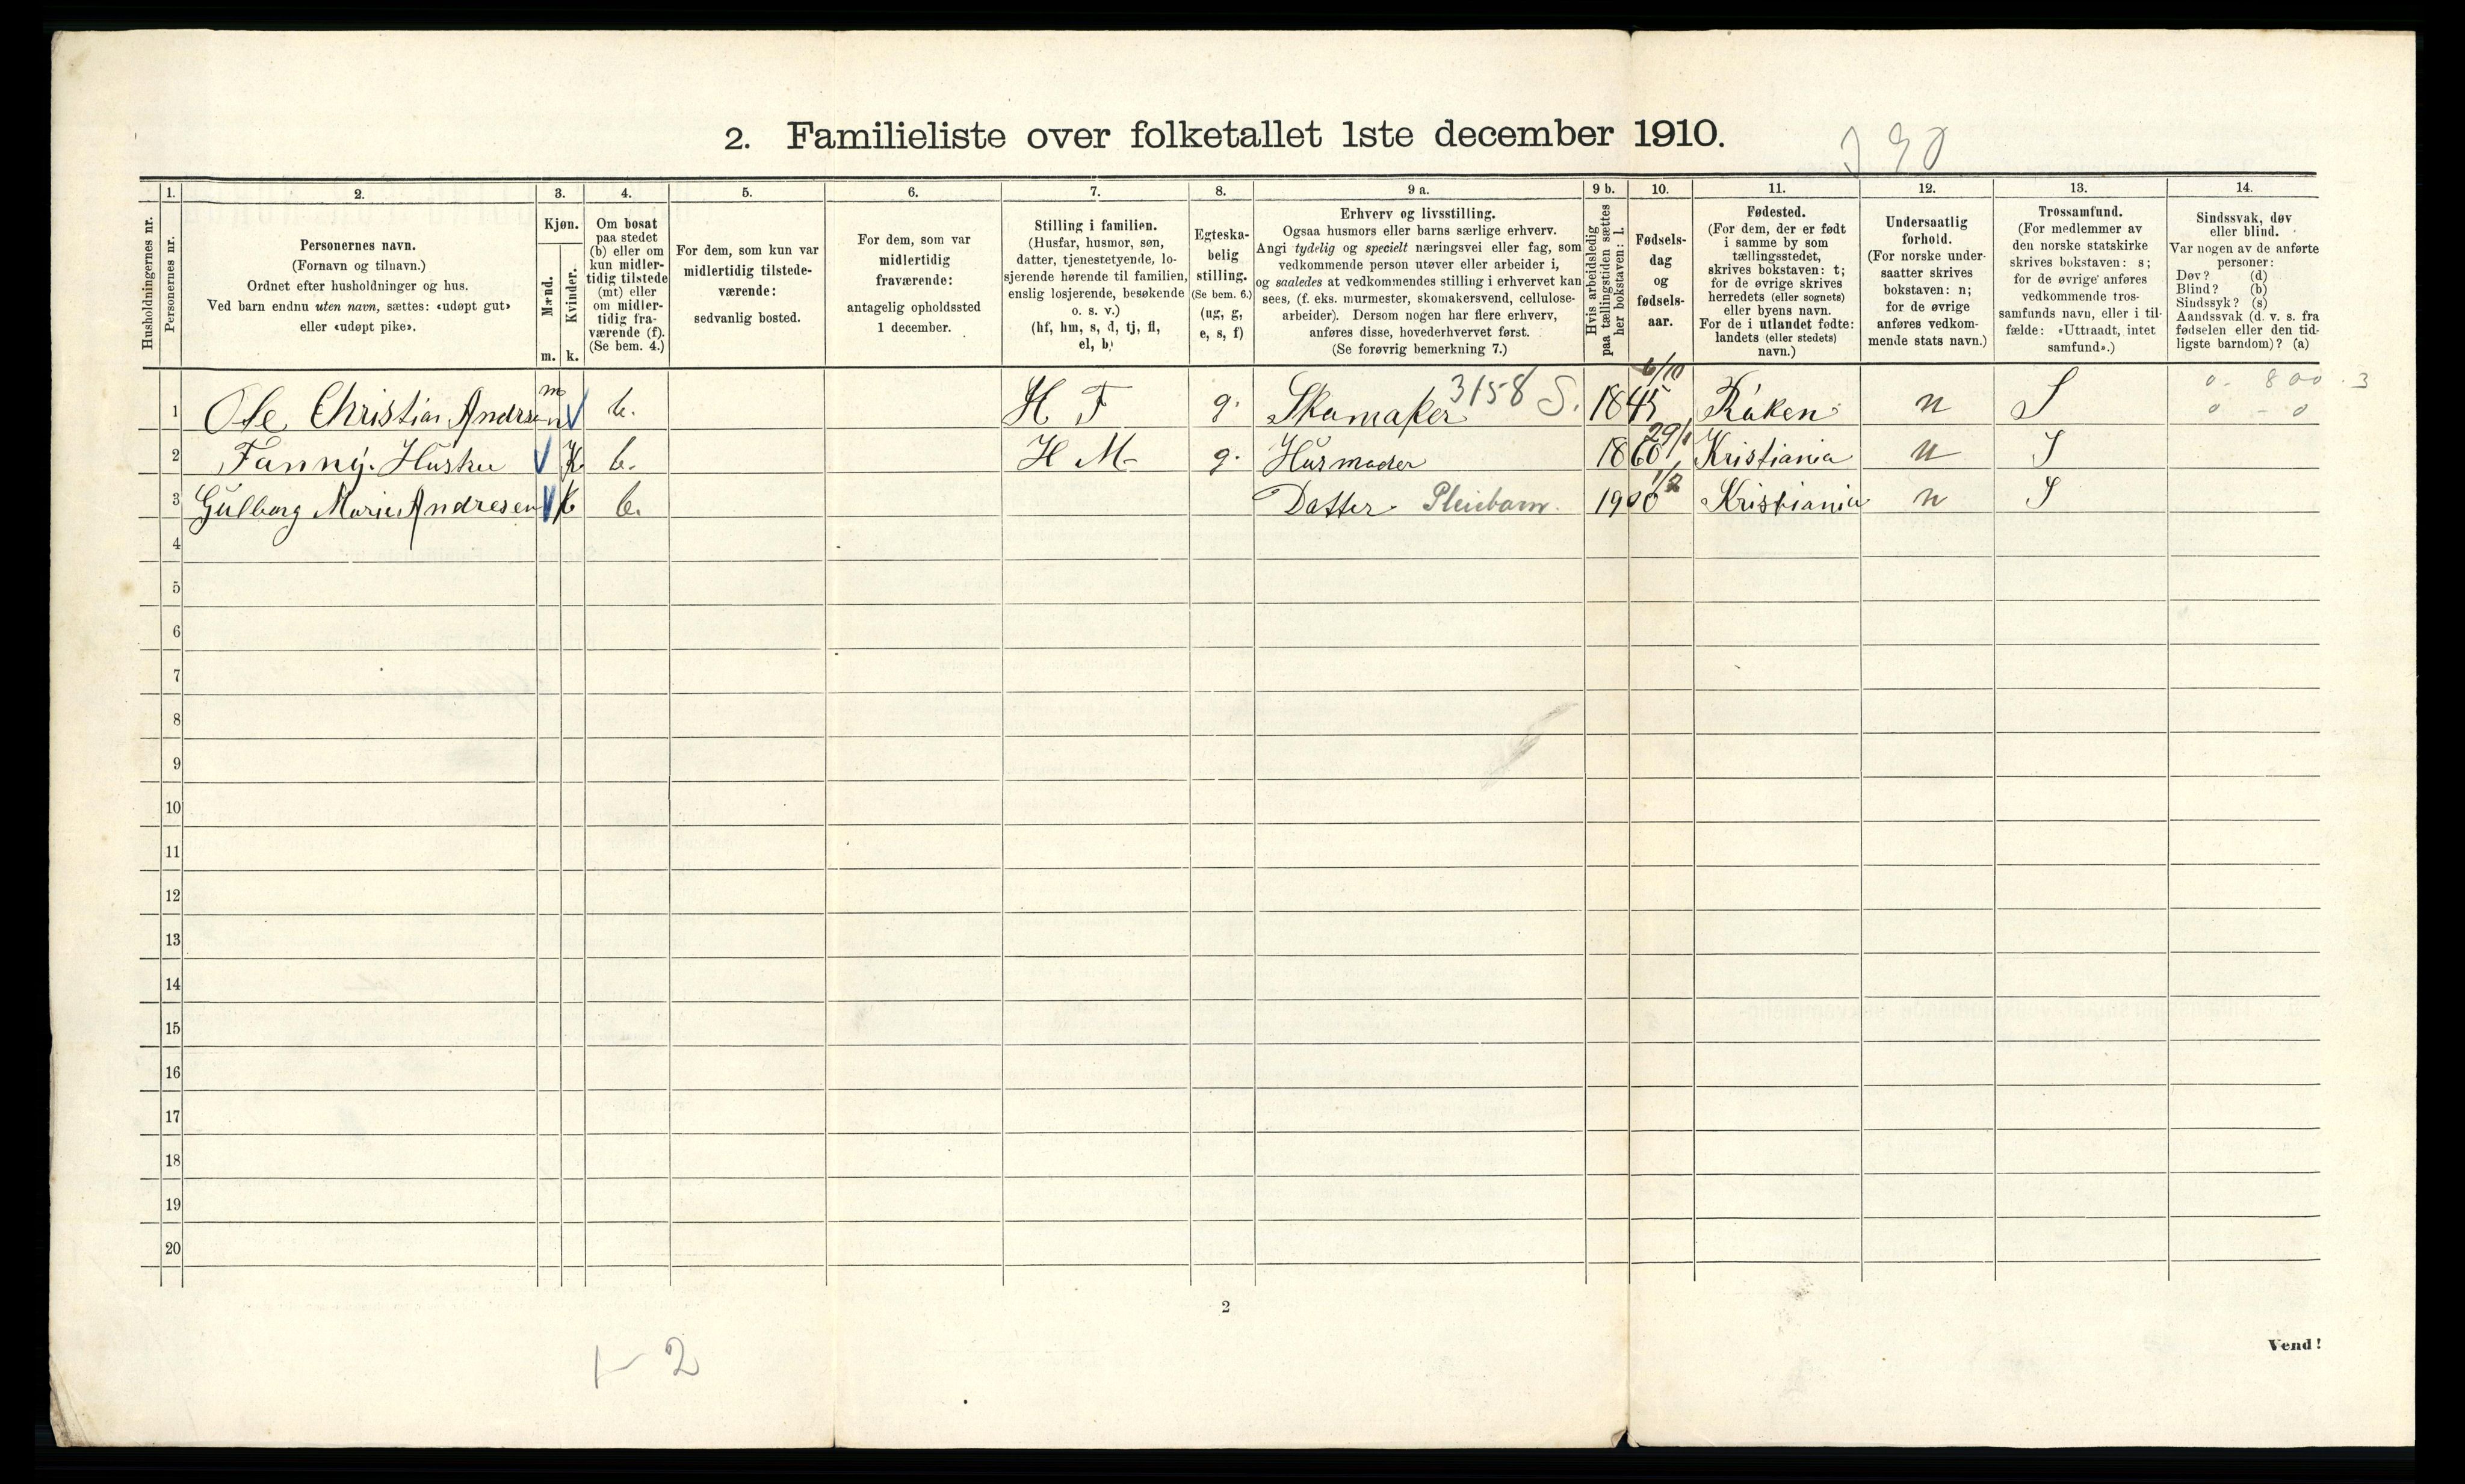 2. Familieliste over folketallet 1ste december 1910.
Husholdningernes nr.
1.
Personernes nr.
2.
Personernes navn.
(Fornavn og tilnavn.)
Ordnet efter husholdninger og hus.
Ved barn endnu uten navn, sættes: «udøpt gut»
eller «udøpt pike».
3.
Kjøn.
Mænd.
Kvinder.
m. k.
4.
Om bosat
paa stedet
(b) eller om
kun midler-
tidig tilstede
(mt) eller
om midler-
tidig fra-
værende (f).
(Se bem. 4.)
5.
For dem, som kun var
midlertidig tilstede-
værende:
sedvanlig bosted.
6.
For dem, som var
midlertidig
fraværende:
antagelig opholdssted
1 december.
7.
Stilling i familien.
(Husfar, husmor, søn,
datter, tjenestetyende, lo-
sjerende hørende til familien,
enslig losjerende, besøkende
o. s. v.)
(hf, hm, s, d, tj, fl,
el, b)
8.
Egteska-
belig
stilling.
(Se bem. 6.)
(ug, g,
e, s, f)
9 a.
Erhverv og livsstilling.
Ogsaa husmors eller barns særlige erhverv.
Angi tydelig og specielt næringsvei eller fag, som
vedkommende person utøver eller arbeider i,
og saaledes at vedkommendes stilling i erhvervet kan
sees, (f. eks. murmester, skomakersvend, cellulose-
arbeider). Dersom nogen har flere erhverv,
anføres disse, hovederhvervet først.
(Se forøvrig bemerkning 7.)
9 b.
Hvis arbeidsledig
paa tællingstiden sættes
her bokstaven: l.
10.
Fødsels-
dag
og
fødsels-
aar.
11.
Fødested.
(For dem, der er født
i samme by som
tællingsstedet,
skrives bokstaven: t;
for de øvrige skrives
herredets (eller sognets)
eller byens navn.
For de i utlandet fødte:
landets (eller stedets)
navn.)
12.
Undersaatlig
forhold.
(For norske under-
saatter skrives
bokstaven: n;
for de øvrige
anføres vedkom-
mende stats navn.)
13.
Trossamfund.
(For medlemmer av
den norske statskirke
skrives bokstaven: s;
for de øvrige anføres
vedkommende tros-
samfunds navn, eller i til-
fælde: «Uttraadt, intet
samfund».)
14.
Sindssvak, døv
eller blind.
Var nogen av de anførte
personer:
Døv? (d)
Blind? (b)
Sindssyk? (s)
Aandssvak (d. v. s. fra
fødselen eller den tid-
ligste barndom)? (a)
1 Ole Christian Andresen m b. H F g. Skomaker 3158 S. 6/10 1845 Röken n S 0. 800. 3
0 - 0
2 Fanny. Hustru K b. H M g. Husmoder 1860 Kristiania n S
3 Gulborg Marie Andresen K b. Datter Pleiebarn. 1900 Kristiania n S
4
5
6
7
8
9
10
11
12
13
14
15
16
17
18
19
20
2
Vend!
1-2